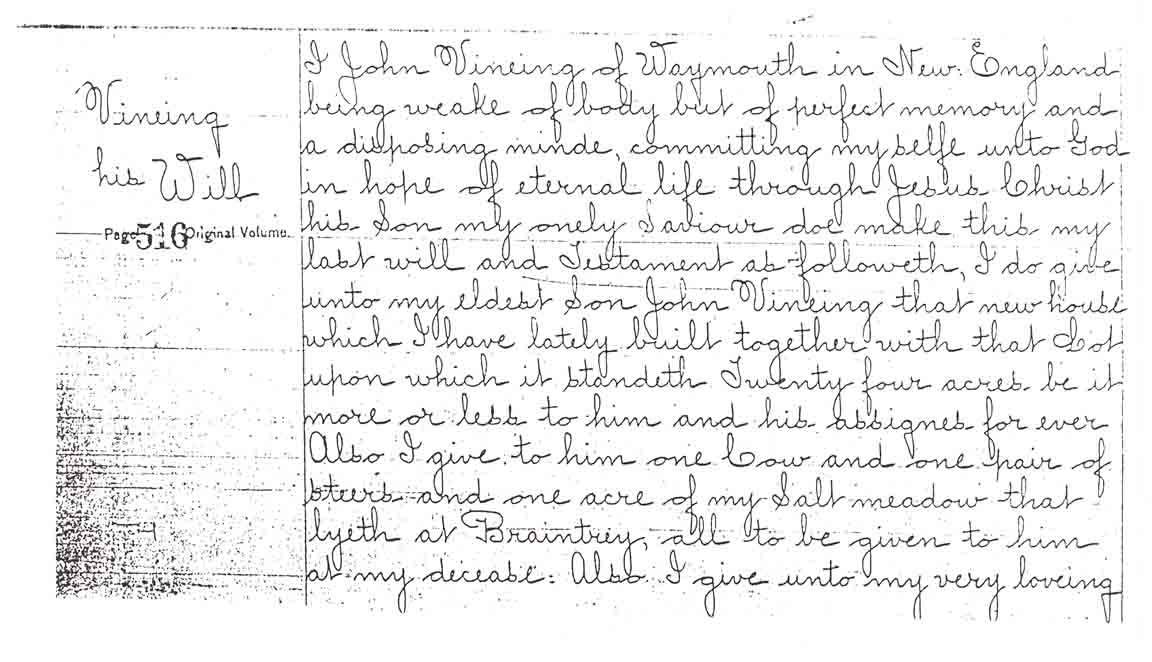 Vineing
his Will
Page 516 Original Volume.
I John Vineing of Waymouth in New: England
being weake of body but of perfect memory and
a disposing minde, committing my selfe unto God
in hope of eternal life through Jesus Christ
his Son my onely Saviour doe make this my
last will and Testament as followeth, I do give
unto my eldest Son John Vineing that new house
which I have lately built together with that Lot
upon which it standeth Twenty four acres be it
more or less to him and his assignes for ever
Also I give to him one Cow and one pair of
steers and one acre of my Salt meadow that
lyeth at Braintrey, all to be given to him
at my decease: Also I give unto my very loveing